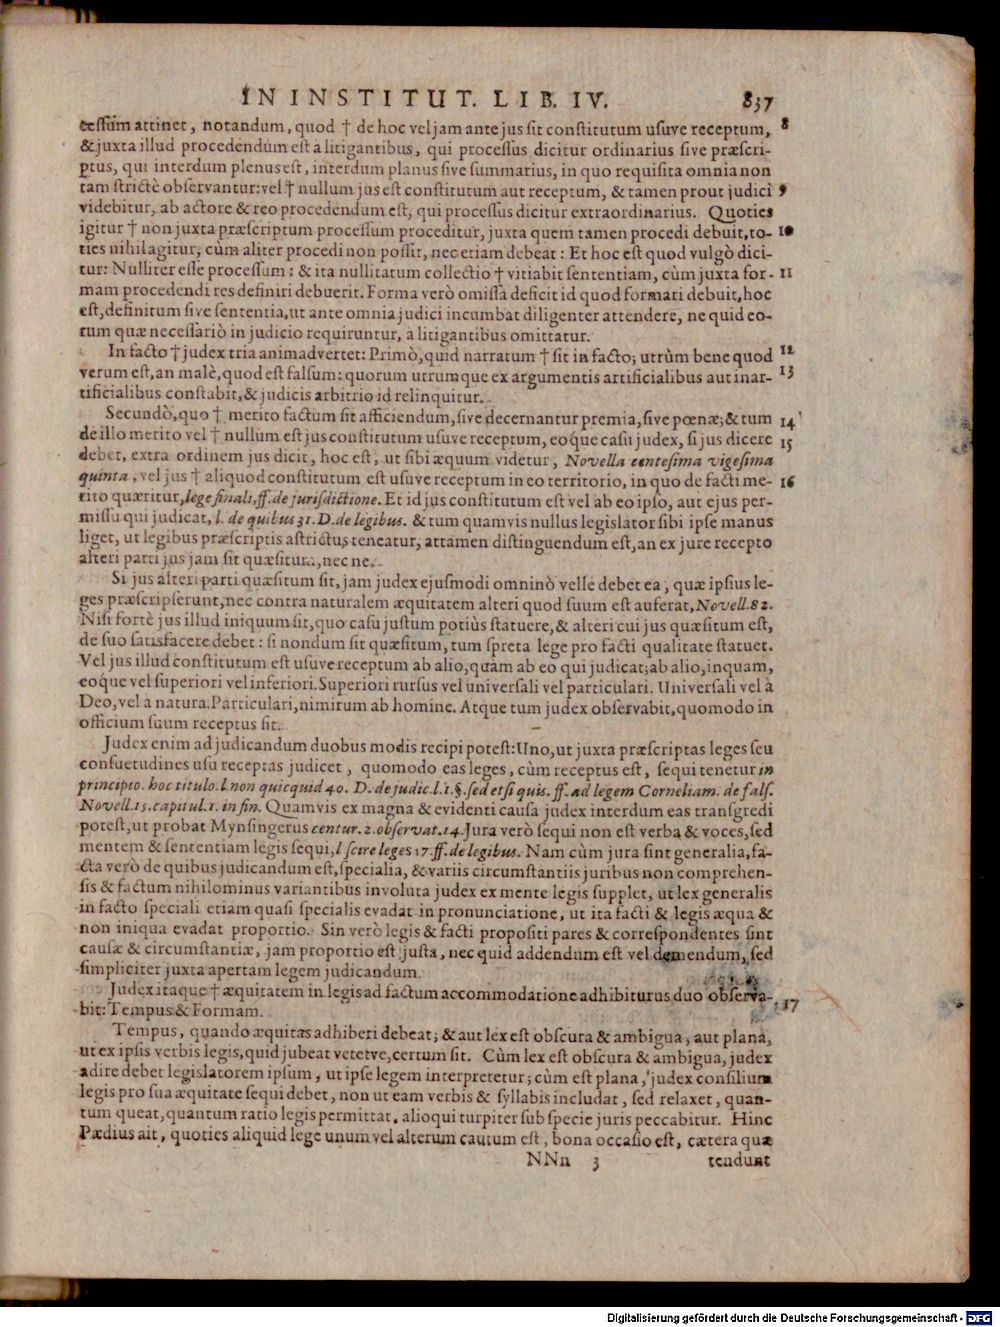 IN INSTITUT. LIB. IV. 837
cessum attinet, notandum, quod † de hoc vel jam ante jus sit constitutum usuve receptum, 8
& juxta illud procedendum est à litigantibus, qui processus dicitur ordinarius sive præscri-
ptus, qui interdum plenus est, interdum planus sive summarius, in quo requisita omnia non
tam strictè observantur: vel † nullum jus est constitutum aut receptum, & tamen prout judici 9
videbitur, ab actore & reo procedendum est, qui processus dicitur extraordinarius. Quoties
igitur † non juxta præscriptum processum proceditur, juxta quem tamen procedi debuit, to- 10
ties nihil agitur, cùm aliter procedi non possit, nec etiam debeat: Et hoc est quod vulgò dici-
tur: Nulliter esse processum: & ita nullitatum collectio † vitiabit sententiam, cùm juxta for- 11
mam procedendi res definiri debuerit. Forma verò omissa deficit id quod formari debuit, hoc
est, definitum sive sententia, ut ante omnia judici incumbat diligenter attendere, ne quid eo-
rum quæ necessariò in judicio requiruntur, à litigantibus omittatur.
In facto † judex tria animadvertet: Primò, quid narratum † sit in facto; utrùm bene quod 12
verum est, an malè, quod est falsum: quorum utrumque ex argumentis artificialibus aut inar- 13
tificialibus constabit, & judicis arbitrio id relinquitur.
Secundò, quo † merito factum sit afficiendum, sive decernantur premia, sive pœnæ; & tum 14
de illo merito vel † nullum est jus constitutum usuve receptum, eoque casu judex, si jus dicere 15
debet, extra ordinem jus dicit, hoc est, ut sibi æquum videtur, Novella centesima vigesima
quinta, vel jus † aliquod constitutum est usuve receptum in eo territorio, in quo de facti me- 16
rito quæritur, lege finali, ff. de jurisdictione. Et id jus constitutum est vel ab eo ipso, aut ejus per-
missu qui judicat, l. de quibus 31. D. de legibus. & tum quamvis nullus legislator sibi ipse manus
liget, ut legibus præscriptis astrictus teneatur, attamen distinguendum est, an ex jure recepto
alteri parti jus jam sit quæsitum, nec ne.
Si jus alteri parti quæsitum sit, jam judex ejusmodi omninò velle debet ea, quæ ipsius le-
ges præscripserunt, nec contra naturalem æquitatem alteri quod suum est auferat, Novell. 82.
Nisi fortè jus illud iniquum sit, quo casu justum potiùs statuere, & alteri cui jus quæsitum est,
de suo satisfacere debet: si nondum sit quæsitum, tum spreta lege pro facti qualitate statuet.
Vel jus illud constitutum est usuve receptum ab alio, quàm ab eo qui judicat; ab alio, inquam,
eoque vel superiori vel inferiori. Superiori rursus vel universali vel particulari. Universali vel à
Deo, vel à natura. Particulari, nimirum ab homine. Atque tum judex observabit, quomodo in
officium suum receptus sit.
Judex enim ad judicandum duobus modis recipi potest: Uno, ut juxta præscriptas leges seu
consuetudines usu receptas judicet, quomodo eas leges, cùm receptus est, sequi tenetur in
principio. hoc titulo. l. non quicquid 40. D. de judic. l. 1. §. sed etsi quis. ff. ad legem Corneliam. de fals.
Novell. 15. capitul. 1. in fin. Quamvis ex magna & evidenti causa judex interdum eas transgredi
potest, ut probat Mynsingerus centur. 2. observat. 14. Jura verò sequi non est verba & voces, sed
mentem & sententiam legis sequi, l scire leges 17. ff. de legibus. Nam cùm jura sint generalia, fa-
cta verò de quibus judicandum est, specialia, & variis circumstantiis juribus non comprehen-
sis & factum nihilominus variantibus involuta judex ex mente legis supplet, ut lex generalis
in facto speciali etiam quasi specialis evadat in pronunciatione, ut ita facti & legis æqua &
non iniqua evadat proportio. Sin verò legis & facti propositi pares & correspondentes sint
causæ & circumstantiæ, jam proportio est justa, nec quid addendum est vel demendum, sed
simpliciter juxta apertam legem judicandum.
Judex itaque † æquitatem in legis ad factum accommodatione adhibiturus duo observa- 17
bit: Tempus & Formam.
Tempus, quando æquitas adhiberi debeat; & aut lex est obscura & ambigua, aut plana,
ut ex ipsis verbis legis, quid jubeat vetetve, certum sit. Cùm lex est obscura & ambigua, judex
adire debet legislatorem ipsum, ut ipse legem interpretetur; cùm est plana, judex consilium
legis pro sua æquitate sequi debet, non ut eam verbis & syllabis includat, sed relaxet, quan-
tum queat, quantum ratio legis permittat, alioqui turpiter sub specie juris peccabitur. Hinc
Pædius ait, quoties aliquid lege unum vel alterum cautum est, bona occasio est, cætera quæ
NNn 3 tendunt
Digitalisierung gefördert durch die Deutsche Forschungsgemeinschaft - DFG